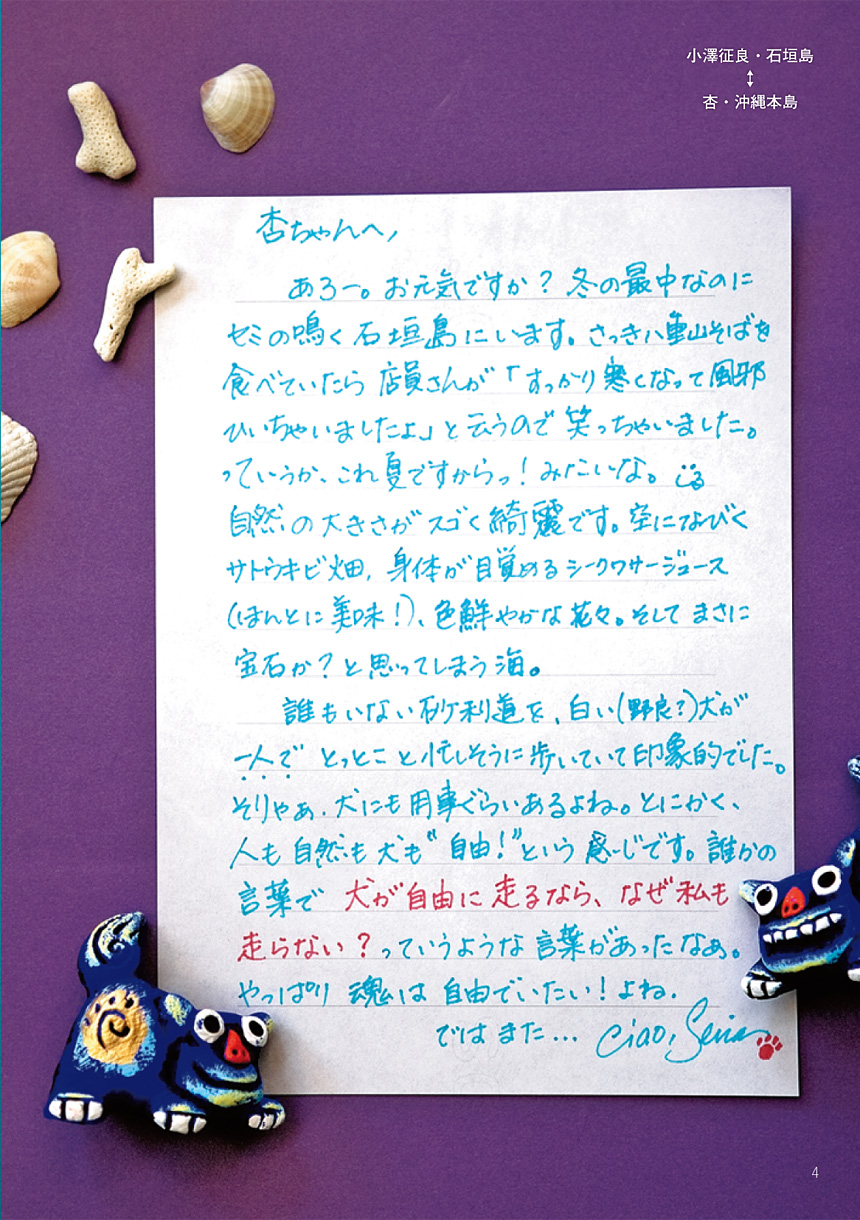 小澤征良・石垣島
↕
杏・沖縄本島
杏ちゃんへ,
あろー。お元気ですか?冬の最中なのに
セミの鳴く石垣島にいます。さっき八重山そばを
食べていたら店員さんが「すっかり寒くなって風邪
ひいちゃいましたよ」と云うので笑っちゃいました。
っていうか、これ夏ですからっ!みたいな。
自然の大きさがスゴく綺麗です。空になびく
サトウキビ畑,身体が目覚めるシークワサージュース
(ほんとに美味!)、色鮮やかな花々。そしてまさに
宝石か?と思ってしまう海。
誰もいない砂利道を、白い(野良?)犬が
一人でとっとこと忙しそうに歩いていて印象的でした。
そりゃあ、犬にも用事ぐらいあるよね。とにかく、
人も自然も犬も"自由!"という感じです。誰かの
言葉で 犬が自由に走るなら、なぜ私も
走らない?っていうような言葉があったなぁ。
やっぱり 魂は 自由でいたい!よね.
ではまた... Ciao, Seira
4